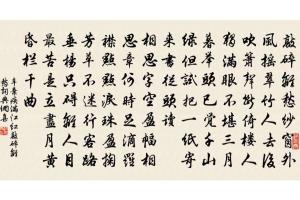 敲碎離愁紗窗外
風搖翠竹人去後
吹簫聲斷倚樓人
獨滿眼不堪三月
暮舉頭已覺千山
綠但試把一紙寄
來書從頭讀
相思字空盈幅相
思意何時足滴羅
襟點點淚珠盈掬
芳草不迷行客路
垂楊只礙離人目
最苦是立盡月黃
昏欄干曲
辛棄疾滿江紅敲碎離
愁詞